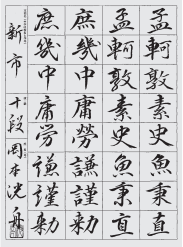 孟軻敦素史魚秉直
孟軻敦素史魚秉直
庶幾中庸勞謙謹勅
庶幾中庸労謙謹勅
新市 十段 岡本洸舟